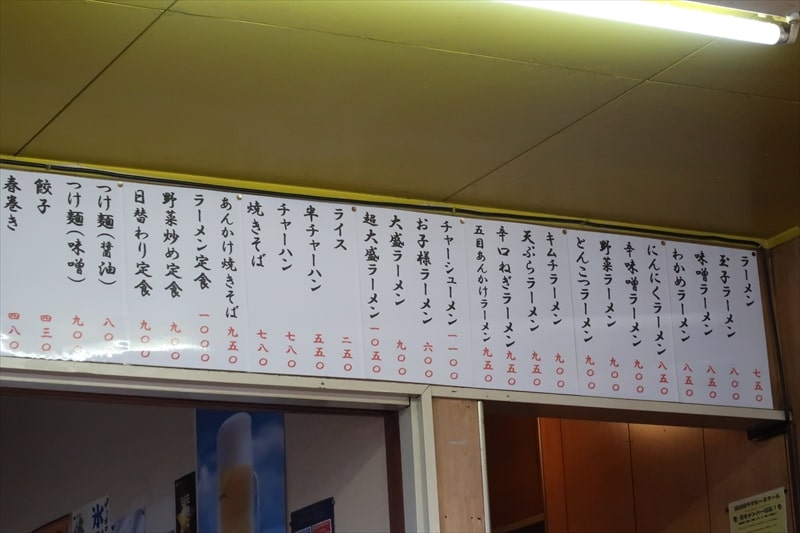 ラーメン 七五〇
玉子ラーメン 八〇〇
味噌ラーメン 八五〇
わかめラーメン 八五〇
にんにくラーメン 八五〇
辛味噌ラーメン 九〇〇
野菜ラーメン 九〇〇
とんこつラーメン 九〇〇
キムチラーメン 九〇〇
天ぷらラーメン 九五〇
辛口ねぎラーメン 九五〇
五目あんかけラーメン 九五〇
チャーシューメン 一一〇〇
お子様ラーメン 六〇〇
大盛ラーメン 九〇〇
超大盛ラーメン 一〇五〇
ライス 二五〇
半チャーハン 五五〇
チャーハン 七八〇
焼きそば 七八〇
あんかけ焼きそば 九五〇
ラーメン定食 一〇〇〇
野菜炒め定食 九〇〇
日替わり定食 九〇〇
つけ麺(醤油) 八〇〇
つけ麺(味噌) 九〇〇
餃子 四三〇
春巻き 四八〇
氷